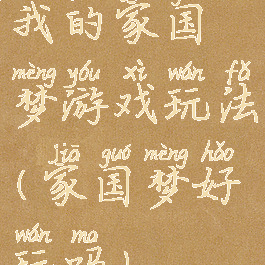 我的家国
mèng yóu xì wán fǎ
梦游戏玩法
jiā guó mèng hǎo
(家国梦好
wán ma
玩吗)